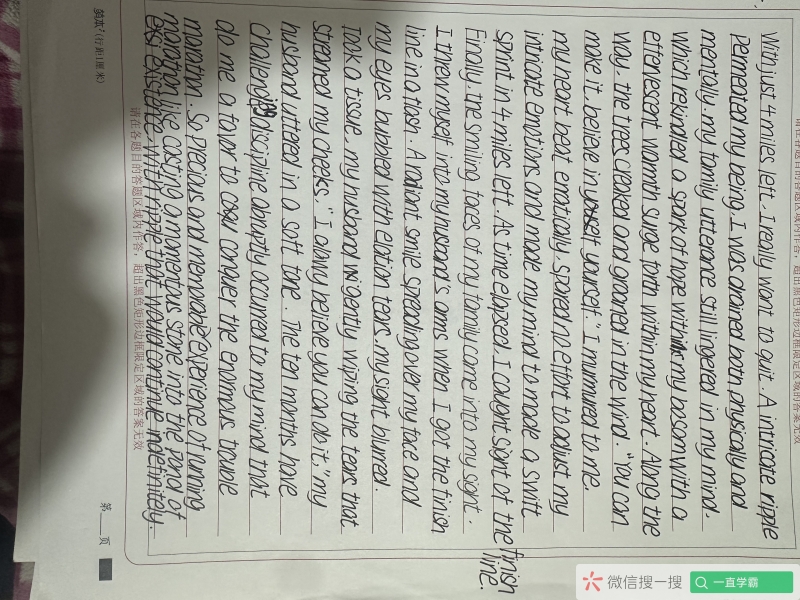 With just 4 miles left, I really want to quit. A intricate ripple
permeated my being, I was drained both physically and
mentally. my family utterance still lingered in my mind,
which rekindled a spark of hope within my bosom with a
effervescent warmth surge forth within my heart. Along the
way, the trees creaked and groaned in the wind. "You can
make it, believe in yourself." I murmured to me.
my heart beat ematically, spared no effort to adjust my
intricate emotions and made my mind to made a swift
sprint in 4 miles left. As time elapsed, I caught sight of the finish
line.
Finally, the smiling faces of my family came into my sight.
I threw myself into my husband's arms when I got the finish
line in a flash. A radiant smile spreading over my face and
my eyes bubbed with elation tears, my sight blurred.
Took a tissue, my husband gently wiping the tears that
streamed my cheeks. " I always believe you can do it," my
husband uttered in a soft tone. The ten months have
Challenging discipline abruptly occurred to my mind that
do me a favor to conquer the enormous trouble
maration. So precious and memorable experience of running
marathon like casting a momentous stone into the pond of
existence, with ripple that would continue indefinitely.
请在各题目的答题区域内作答，超出黑色矩形边框限定区域的答案无效
第 页
请在各题目的答题区域内作答，超出黑色矩形边框限定区域的答案无效
微信搜一搜
一直学霸